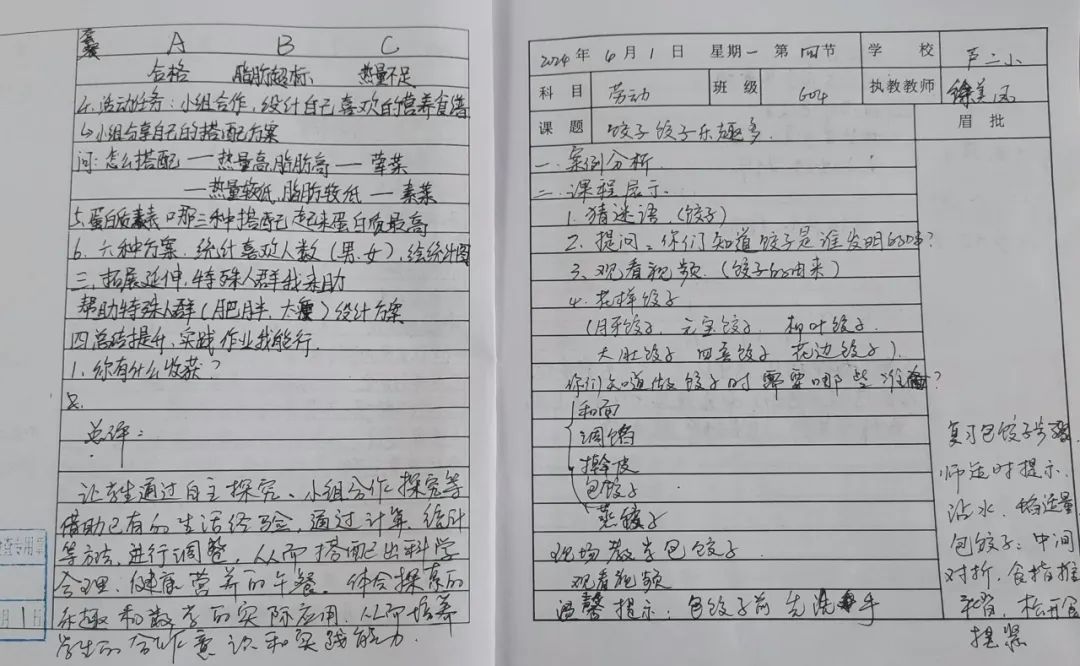 套餐 A B C
合格 脂肪超标 热量不足
4. 活动任务：小组合作，设计自己喜欢的营养食谱
↳小组分享自己的搭配方案
问：怎么搭配 — 热量高,脂肪高 — 荤菜
— 热量较低,脂肪较低 — 素菜
5. 蛋白质 哪三种搭配起来蛋白质最高
6. 六种方案. 统计喜欢人数（男.女）, 绘统计图
三. 拓展延伸, 特殊人群我来助
帮助特殊人群（肥胖. 太瘦）设计方案
四 总结提升, 实践作业我能行.
1. 你有什么收获？
2.
总评：
让学生通过自主探究、小组合作探究等
借助已有的生活经验, 通过计算、统计
等方法, 进行调整, 从而搭配出科学
合理、健康营养的午餐. 体会探索的
乐趣和数学的实际应用, 从而培养
学生的合作意识和实践能力.
查专用章
月1日
2024 年 4 月 1 日 星期一 第 四 节 学 校 芦二小
科 目 劳动 班 级 604 执教教师 徐美凤
课 题 饺子饺子乐趣多. 眉 批
一. 案例分析
二. 课程展示.
1. 猜迷语.（饺子）
2. 提问。你们知道饺子是谁发明的吗？
3. 观看视频.（饺子的由来）
4. 花样饺子
（月牙饺子. 元宝饺子. 柳叶饺子.
大肚饺子 四喜饺子 花边饺子）.
你们知道做饺子时需要哪些准备？
和面
调馅
擀皮
包饺子
蒸饺子
现场教学包饺子.
观看视频
温馨提示：包饺子前先洗手
复习包饺子步骤
师适时提示.
沾水. 馅适量
包饺子：中间
对折, 食指推
松开
捏紧